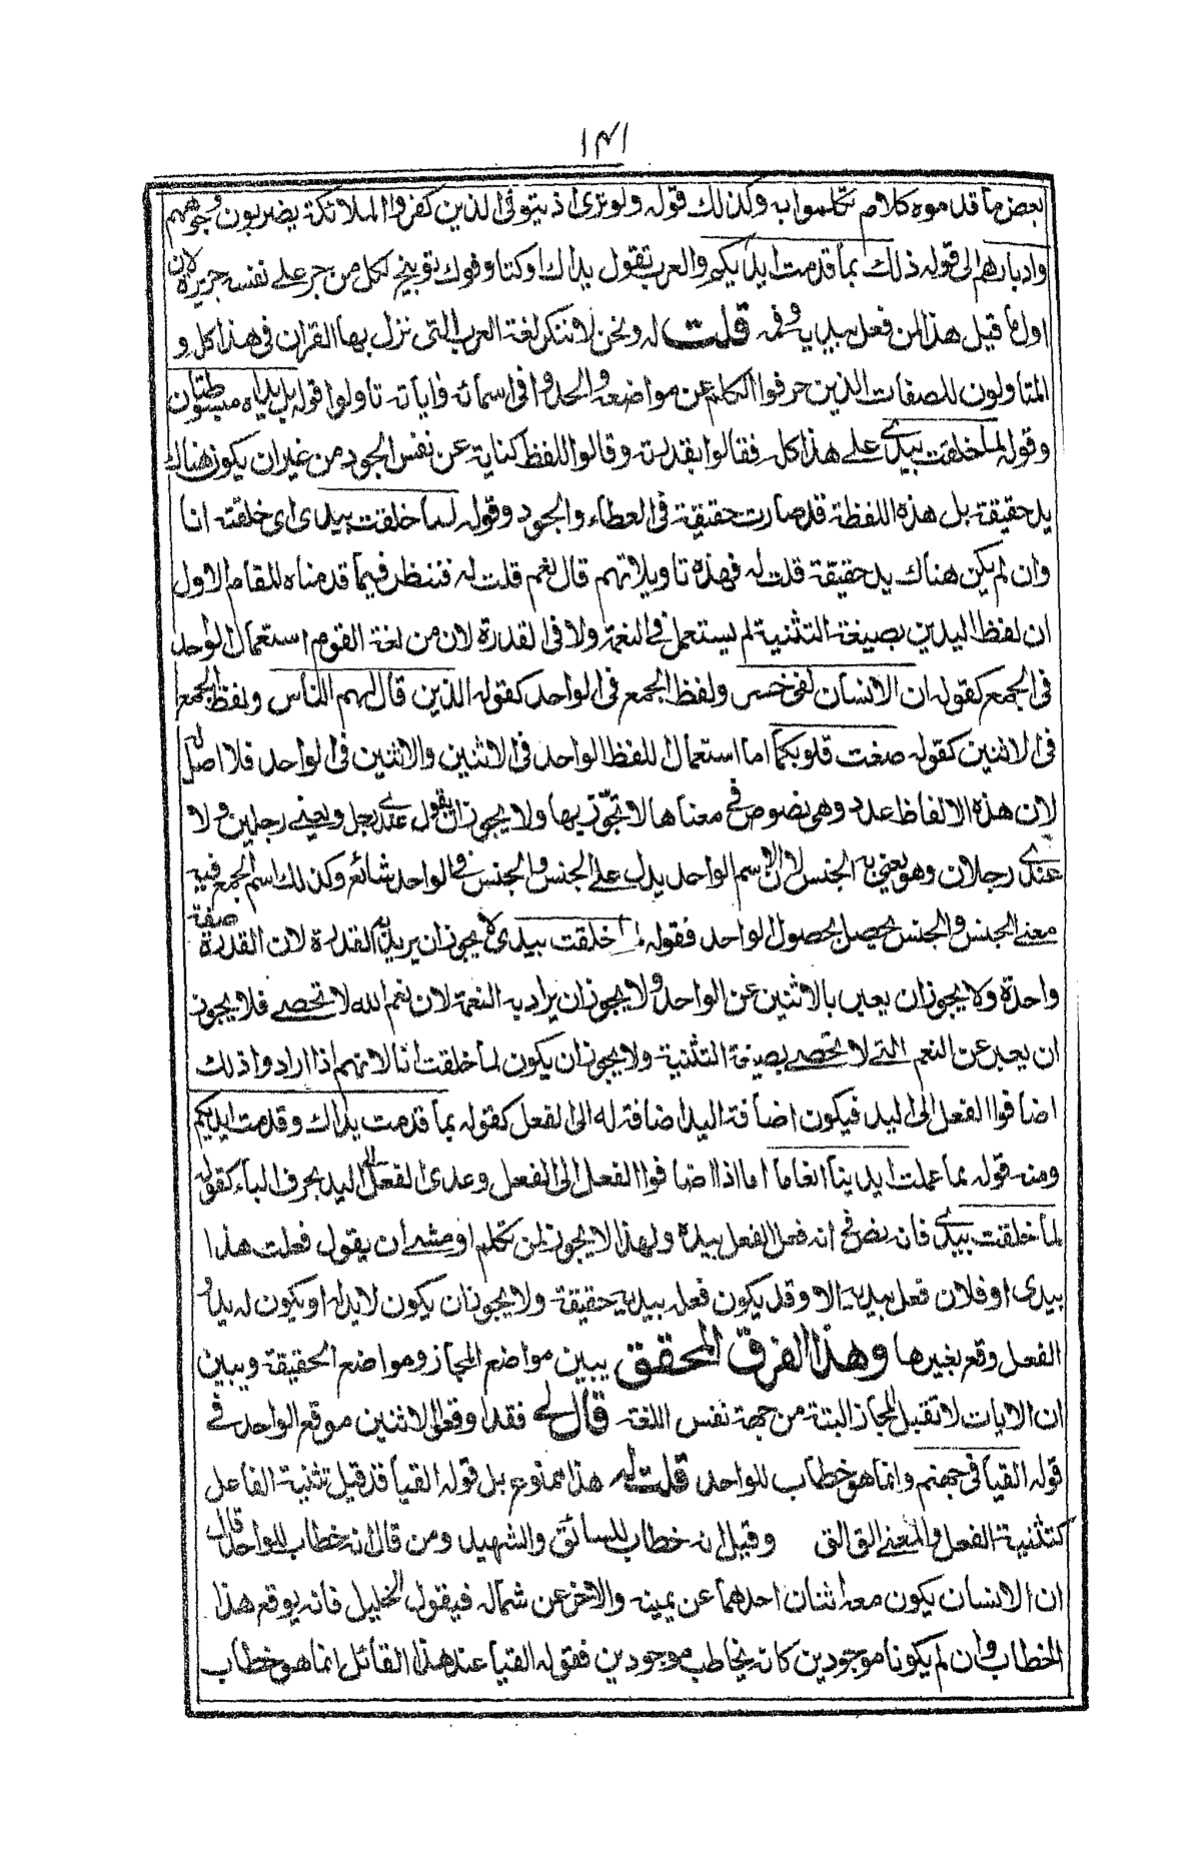 ۱۴۱
بعض ما قدموه كلام تكلموا به وكذلك قوله ولو ترى اذ يتوفى الذين كفروا الملائكة يضربون وجوههم
وادبارهم الى قوله ذلك بما قدمت ايديكم والعرب تقول يداك اوكتا وفوك نفخ توبيخ لكل من جر على نفسه جريرة لان
اول ما قيل هذا لمن فعل بيديه وفمه قلت له ونحن لا ننكر لغة العرب التى نزل بها القران فى هذا كله و
المتاولون للصفات الذين حرفوا الكلم عن مواضعه والحدوا فى اسمائه واياته تاولوا قوله بل يداه مبسوطتان
وقوله لما خلقت بيدى على هذا كله فقالوا بقدرته وقالوا اللفظ كناية عن نفس الجود من غير ان يكون هناك
يد حقيقة بل هذه اللفظة قد صارت حقيقة فى العطاء والجود وقوله لما خلقت بيدى اى خلقته انا
وان لم يكن هناك يد حقيقة قلت له فهذه تاويلاتهم قال نعم قلت له فننظر فيما قدمناه للمقام الاول
ان لفظ اليدين بصيغة التثنية لم يستعمل فى النعمة ولا فى القدرة لان من لغة القوم استعمال الواحد
فى الجمع كقوله ان الانسان لفى خسر ولفظ الجمع فى الواحد كقوله الذين قال لهم الناس ولفظ الجمع
فى الاثنين كقوله صغت قلوبكما اما استعمال للفظ الواحد فى الاثنين والاثنين فى الواحد فلا اصل له
لان هذه الالفاظ عدد وهى نصوص فى معناها لا تجوز بها ولا يجوز ان يقول عندى رجل ويعنى رجلين ولا
عندى رجلان وهو يعنى به الجنس لان الاسم الواحد يدل على الجنس والجنس فى الواحد شائع وكذلك اسم الجمع فيه
معنى الجنس والجنس يحصل بحصول الواحد فقوله لما خلقت بيدى لا يجوز ان يريد به القدرة لان القدرة صفة
واحدة ولا يجوز ان يعبر بالاثنين عن الواحد ولا يجوز ان يراد به النعمة لان نعم الله لا تحصى فلا يجوز
ان يعبر عن النعم التى لا تحصى بصيغة التثنية ولا يجوز ان يكون لما خلقت انا لانهم اذا ارادوا ذلك
اضافوا الفعل الى اليد فيكون اضافة اليد اضافة له الى الفعل كقوله بما قدمت يداك وقدمت ايديكم
ومنه قوله مما عملت ايدينا انعاما اما اذا اضافوا الفعل الى الفعل وعدى الفعل الى اليد بحرف الباء كقوله
لما خلقت بيدى فانه نص فى انه فعل الفعل بيده ولهذا لا يجوز لمن تكلم او مشى ان يقول فعلت هذا
بيدى او فلان فعل بيديه الا وقد يكون فعله بيديه حقيقة ولا يجوز ان يكون لا يد له او يكون له يد و
الفعل وقع بغيرها وهذا الفرق المحقق يبين مواضع المجاز ومواضع الحقيقة ويبين
ان الايات لا تقبل المجاز البتة من جهة نفس اللغة قال لى فقد اوقعوا الاثنين موقع الواحد فى
قوله القيا فى جهنم وانما هو خطاب للواحد قلت له هذا ممنوع بل قوله القيا قد قيل تثنية الفاعل
كتثنية الفعل والمعنى الق الق وقيل انه خطاب للسائق والشهيد ومن قال انه خطاب للواحد قال
ان الانسان يكون معه اثنان احدهما عن يمينه والاخر عن شماله فيقول الخليل فانه يوقع هذا
الخطاب وان لم يكونا موجودين كانه يخاطب موجودين فقوله القيا عند هذا القائل انما هو خطاب